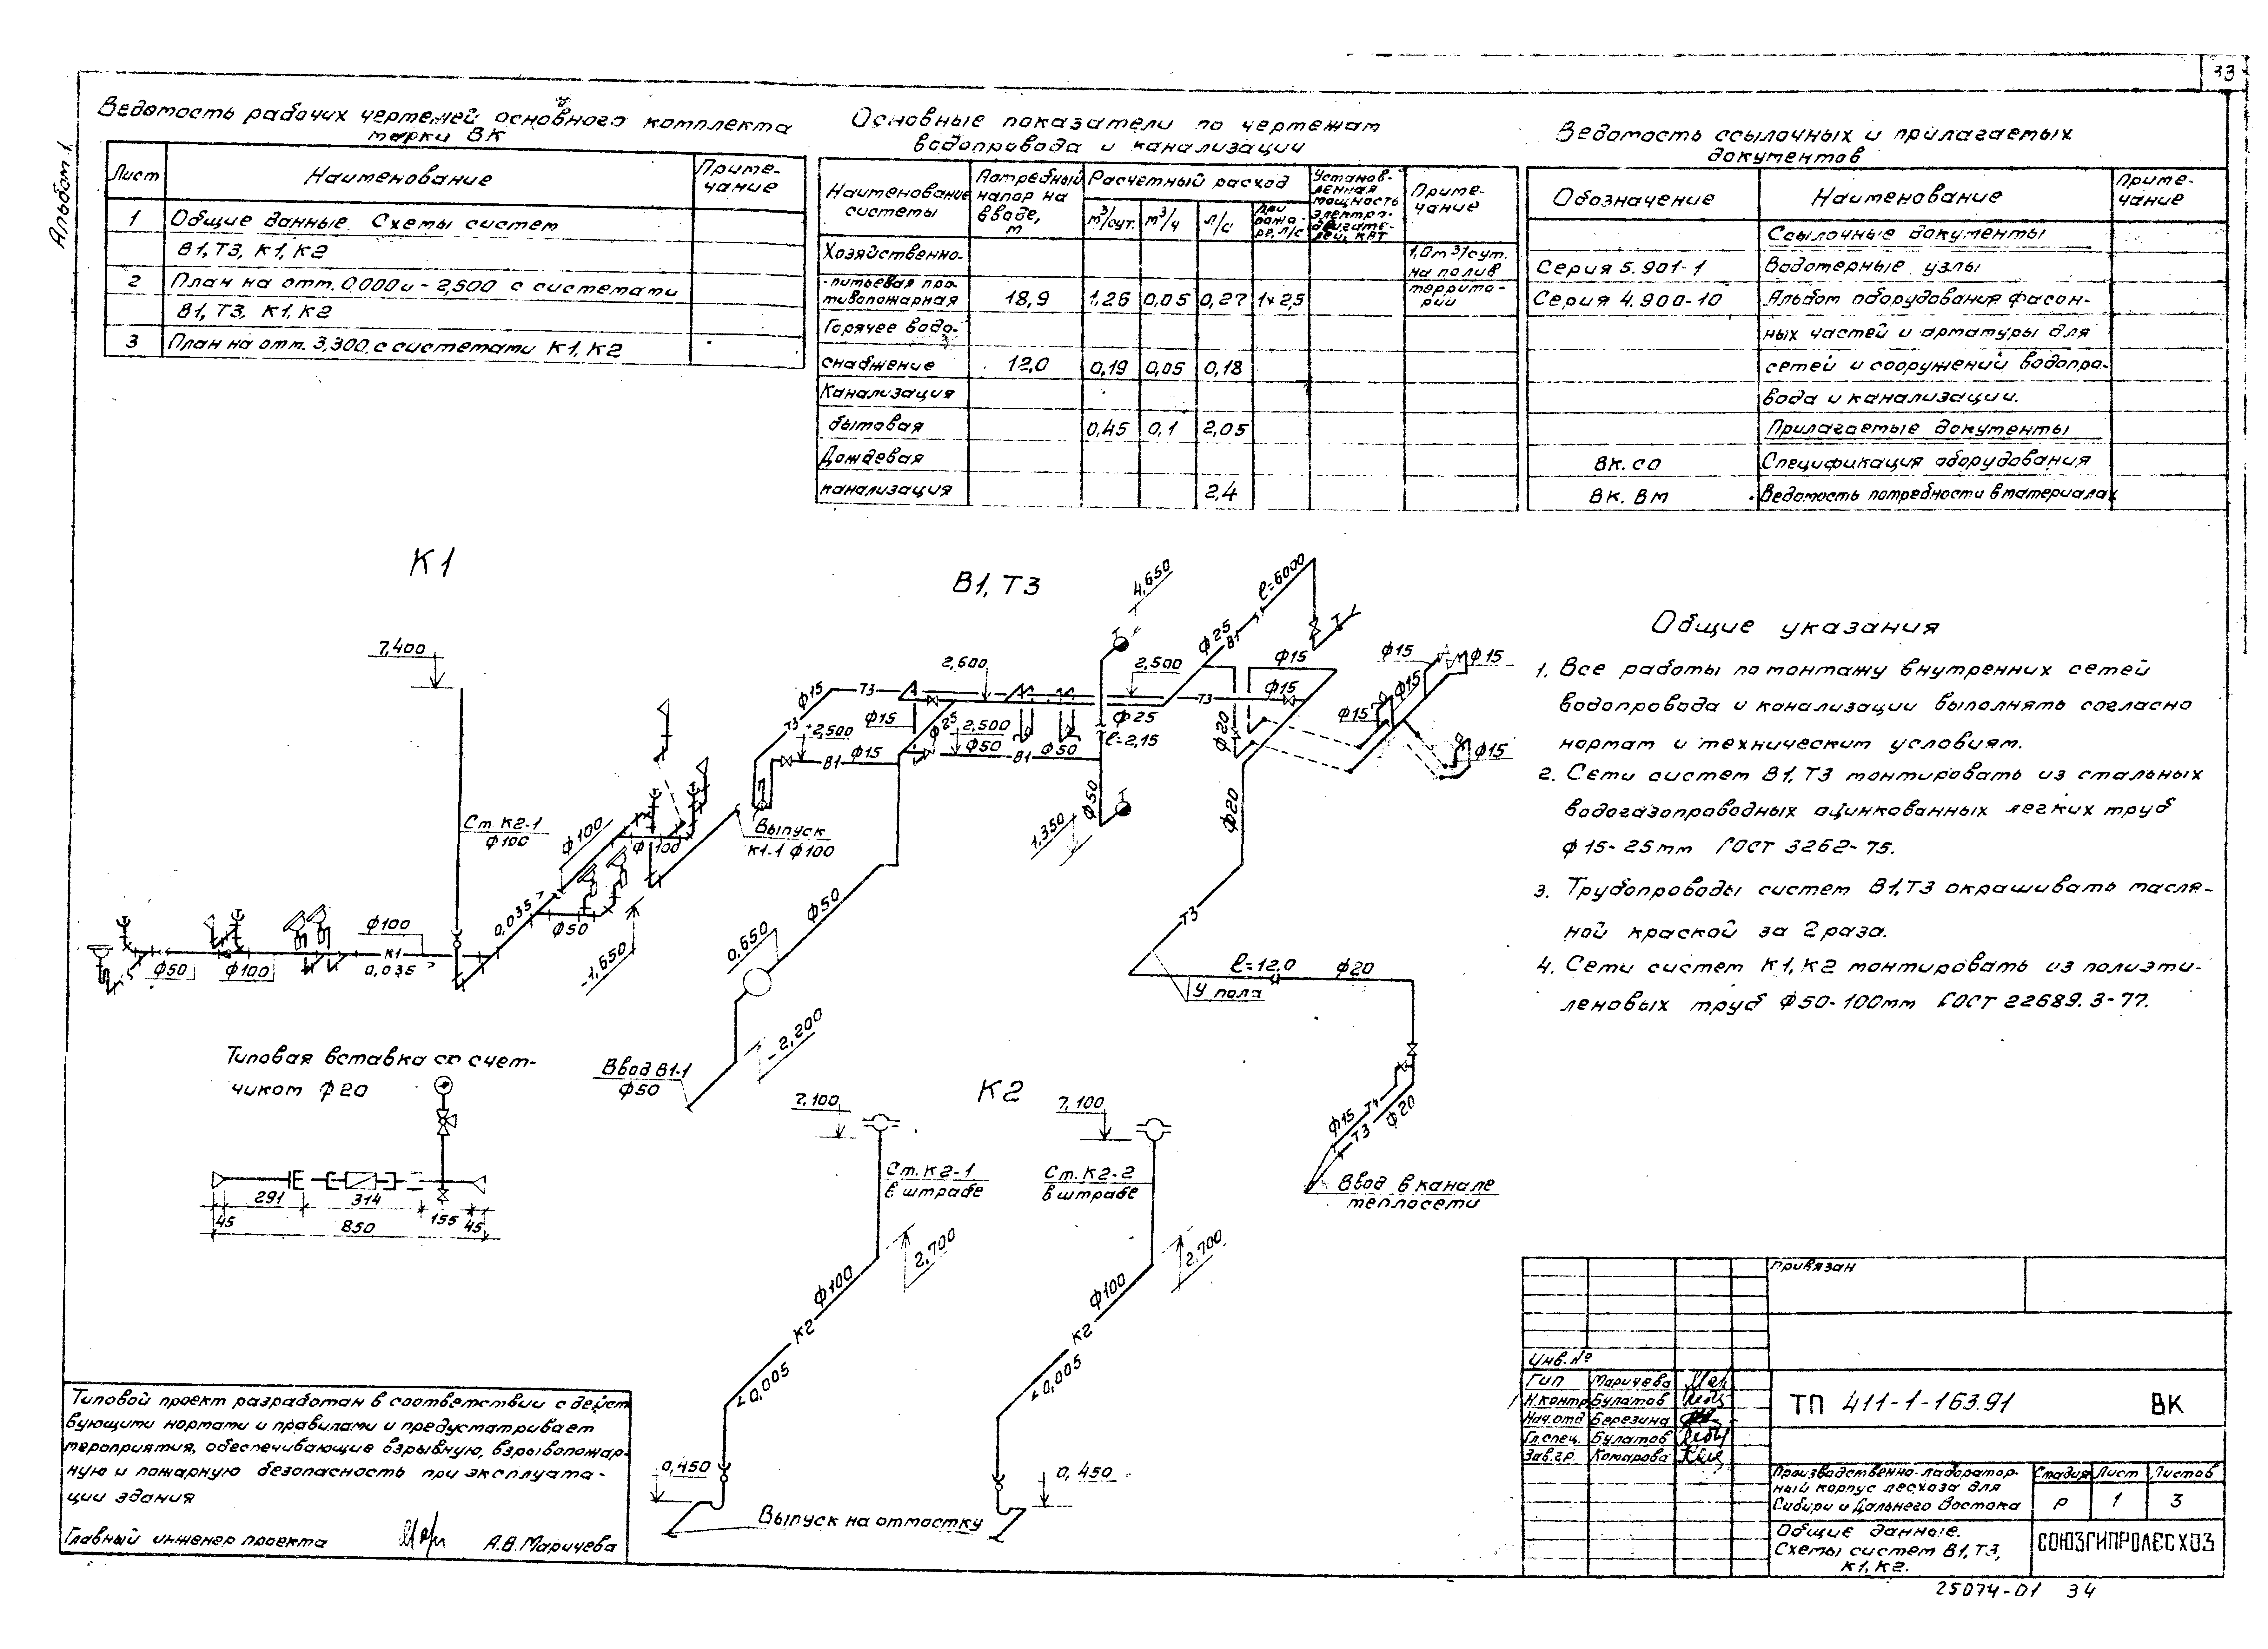 33
Альбом 1.
Ведомость рабочих чертежей основного комплекта
марки ВК
Лист Наименование Приме-
чание
1 Общие данные. Схемы систем
В1, Т3, К1, К2
2 План на отм. 0.000 и -2,500 с системами
В1, Т3, К1, К2
3 План на отм. 3,300, с системами К1, К2
Основные показатели по чертежам
водопровода и канализации
Наименование
системы
Потребный
напор на
вводе,
м
Расчетный расход
м³/сут. м³/ч л/с
При
пожа-
ре, л/с
Установ-
ленная
мощность
электро-
двигате-
лей, кВт
Приме-
чание
Хозяйственно-
-питьевая про-
тивопожарная 18,9 1,26 0,05 0,27 1×2,5
1,0 м³/сут.
на полив
террито-
рии
Горячее водо-
снабжение 12,0 0,19 0,05 0,18
Канализация
бытовая 0,45 0,1 2,05
Дождевая
канализация 2,4
Ведомость ссылочных и прилагаемых
документов
Обозначение Наименование Приме-
чание
Ссылочные документы
Серия 5.901-1 Водомерные узлы
Серия 4.900-10 Альбом оборудования фасон-
ных частей и арматуры для
сетей и сооружений водопро-
вода и канализации.
Прилагаемые документы
ВК. СО Спецификация оборудования
ВК. ВМ Ведомость потребности в материалах
К1
7,400
Ст. К2-1
ф100
ф100
ф100
Выпуск
К1-1 ф100
0,035
ф50
-1,650
ф100
К1
0,035
ф50
ф100
В1, Т3
4,650
ℓ=6000
ф25
В1
2,600
2,500
ф15
ф15
ф15
ф15
ф15
ф15
ф15
ф15
Т3
Т3
Т3
2,500
ф15
В1
ф15
2,500
ф50
В1
ф50
ф25
ℓ=2,15
ф20
ф50
1,350
ф20
ф50
0,650
-2,200
Ввод В1-1
ф50
Т3
ℓ=12,0 ф20
У пола
ф15 Т4
Т3 ф20
Ввод в канале
теплосети
Типовая вставка со счет-
чиком ф20
291 314
45 155 45
850
К2
7,100
Ст. К2-1
в штрабе
2,700
ф100
К2
0,005
0,450
7,100
Ст. К2-2
в штрабе
2,700
ф100
К2
0,005
0,450
Выпуск на отмостку
Общие указания
1. Все работы по монтажу внутренних сетей
водопровода и канализации выполнять согласно
нормам и техническим условиям.
2. Сети систем В1, Т3 монтировать из стальных
водогазопроводных оцинкованных легких труб
ф 15-25мм ГОСТ 3262-75.
3. Трубопроводы систем В1, Т3 окрашивать масля-
ной краской за 2 раза.
4. Сети систем К1, К2 монтировать из полиэти-
леновых труб ф50-100мм ГОСТ 22689.3-77.
Типовой проект разработан в соответствии с дейст
вующими нормами и правилами и предусматривает
мероприятия, обеспечивающие взрывную, взрывопожар-
ную и пожарную безопасность при эксплуата-
ции здания
Главный инженер проекта А.В. Маричева
привязан
Инв. №
ГИП Маричева
Н.контр Булатов
Нач.отд Березина
Гл.спец. Булатов
Зав.гр. Комарова
ТП 411-1-163.91 ВК
Производственно-лаборатор-
ный корпус лесхоза для
Сибири и Дальнего Востока
Стадия Лист Листов
Р 1 3
Общие данные.
Схемы систем В1, Т3,
К1, К2.
СОЮЗГИПРОЛЕСХОЗ
25074-01 34